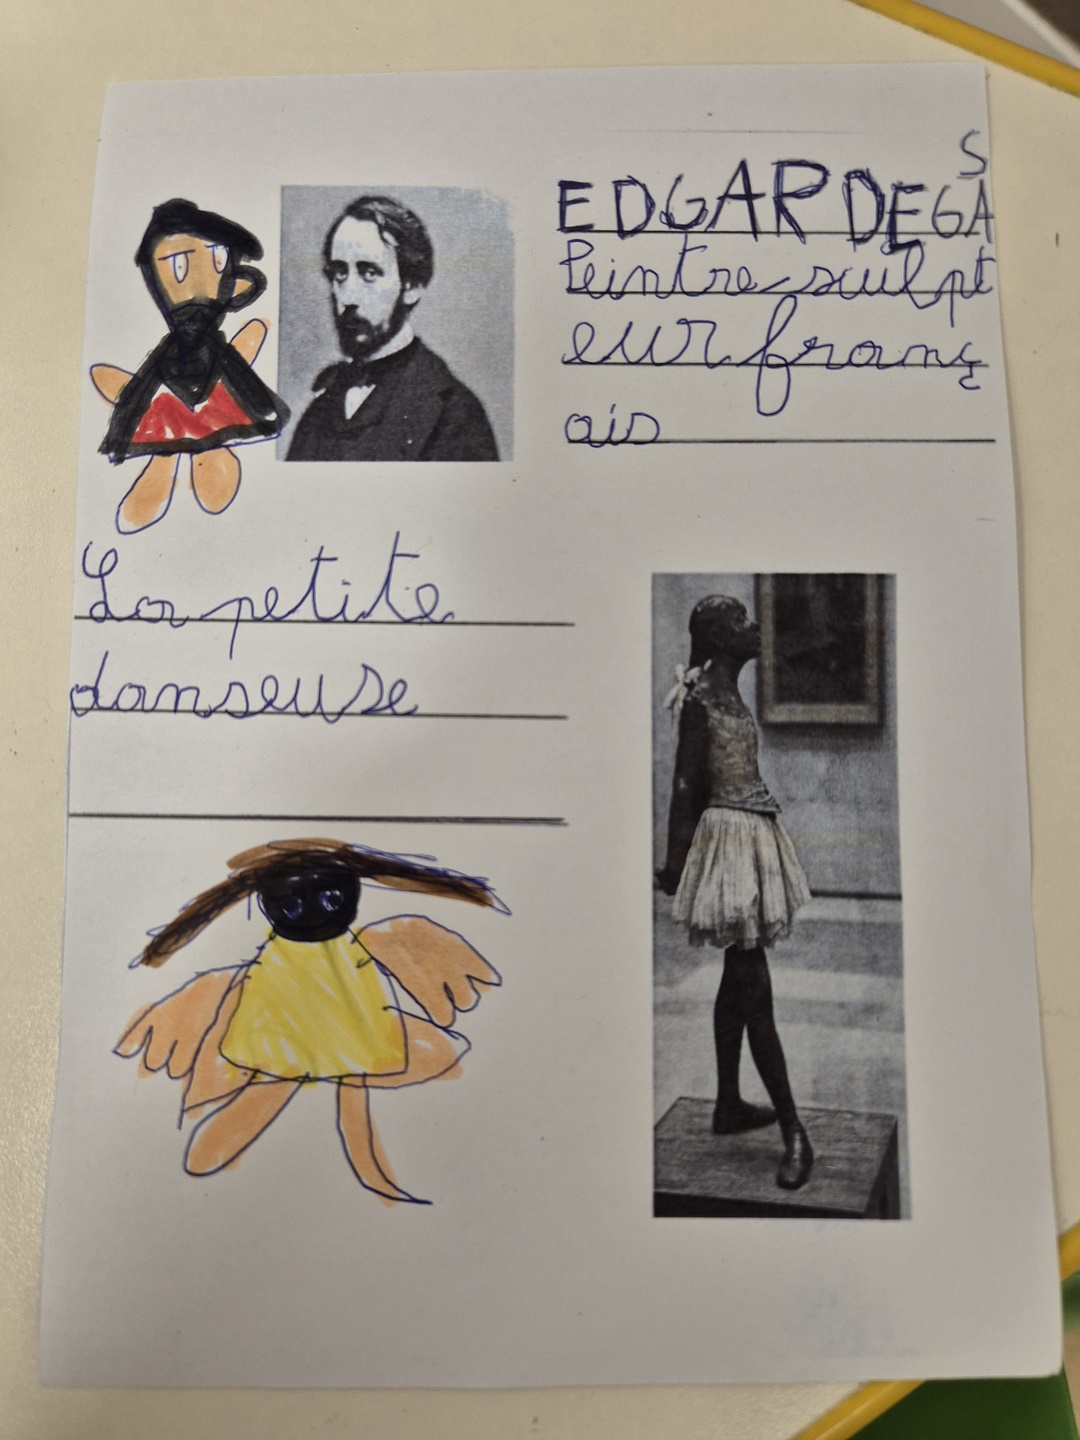 EDGAR DEGAS
Peintre sculpt
eur franç
ais
La petite
danseuse